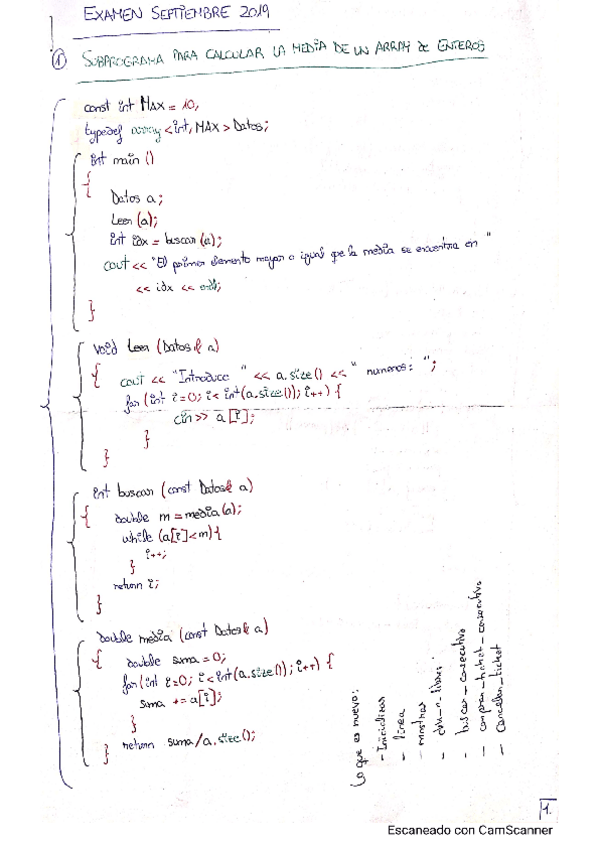 EXAMEN SEPTIEMBRE 2019
① SUBPROGRAMA PARA CALCULAR LA MEDIA DE UN ARRAY de ENTEROS
const int MAX = 10;
typedef array <int, MAX> Datos;
int main ()
{
Datos a;
Leer (a);
int idx = buscar (a);
cout << "El primer elemento mayor o igual que la media se encuentra en "
<< idx << endl;
}
void Leer (Datos& a)
{ cout << "Introduce " << a.size() << " numeros: ";
for (int i=0; i< int(a.size()); i++) {
cin >> a[i];
}
}
int buscar (const Datos& a)
{ double m = media(a);
while (a[i]<m){
i++;
}
return i;
}
double media (const Datos& a)
{ double suma = 0;
for(int i=0; i<int(a.size()); i++) {
suma += a[i];
}
return suma/a.size();
}
Lo que es nuevo:
- Inicializar
- linea
- mostrar
-
- buscar-consecutivo
- comprar-ticket-consecutivo
- Cancelar-ticket
1.
Escaneado con CamScanner